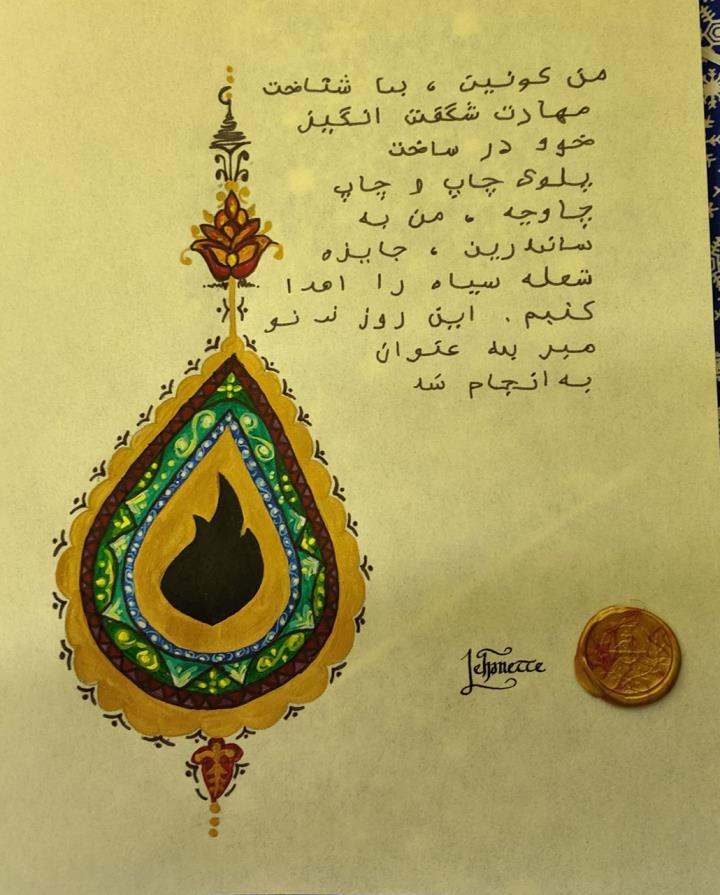 من کوئین ، با شناخت
مهارت شگفت انگیز
خود در ساخت
پلوی چاپ و چاپ
چاوچه ، من به
ساندرین ، جایزه
شعله سیاه را اهدا
کنیم . این روز ند نو
میر به عنوان
به انجام شد
Jehanette